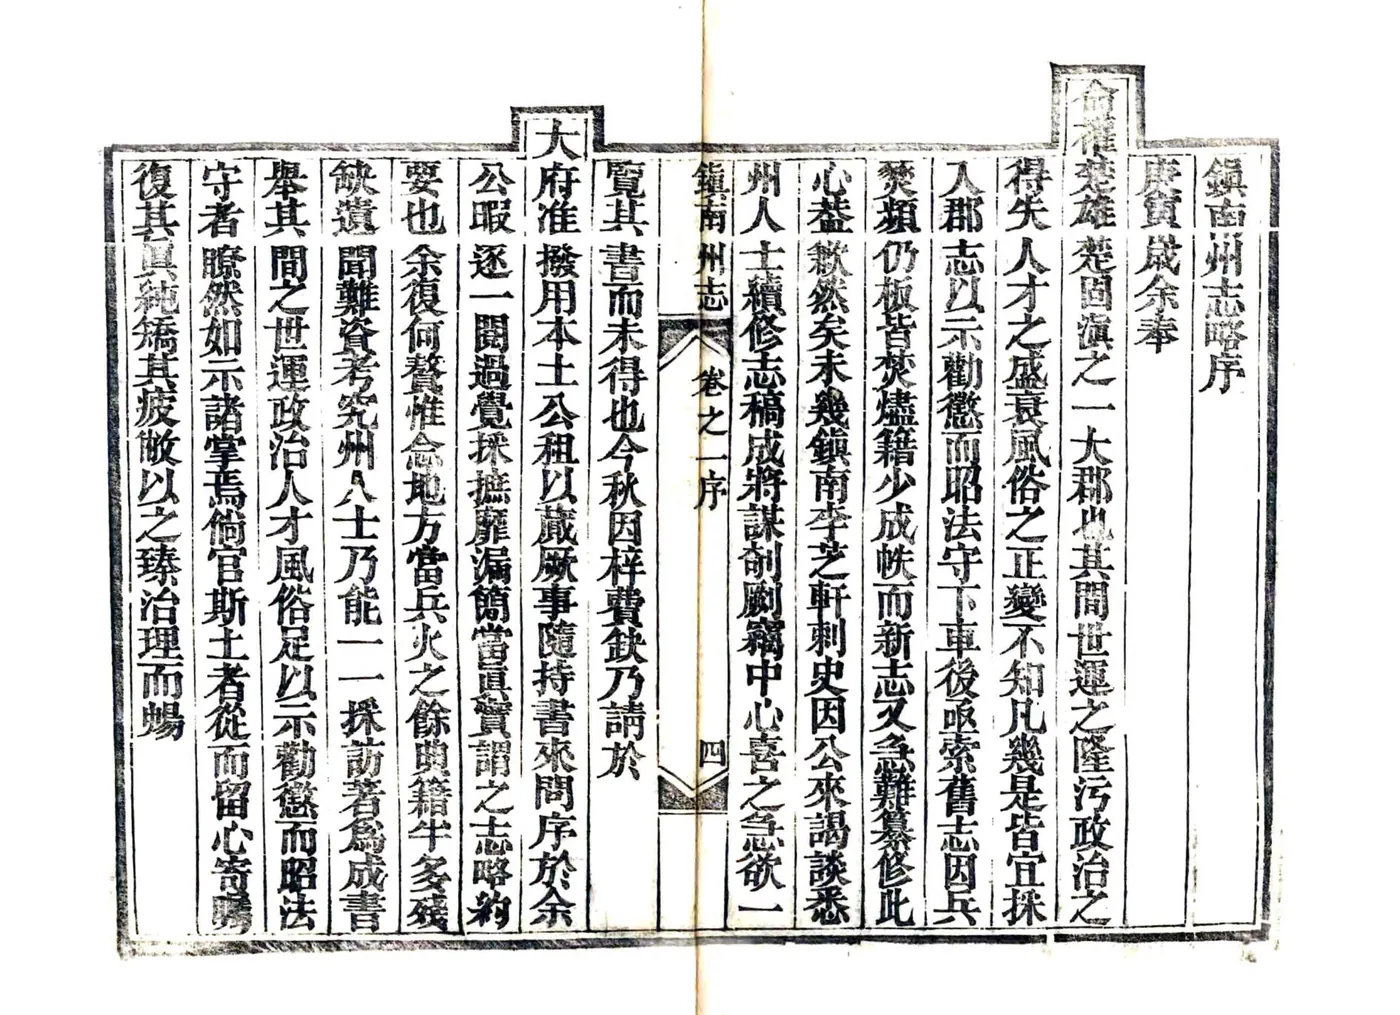 鎮南州志略序
庚寅歲余奉
命權楚雄楚固滇之一大郡也其間世運之隆污政治之
得失人才之盛衰風俗之正變不知凡幾是皆宜採
入郡志以示勸懲而昭法守下車後亟索舊志因兵
燹頻仍板皆焚燼籍少成帙而新志又急難纂修此
心益歉然矣未幾鎮南李芝軒刺史因公來謁談悉
州人士續修志稿成將謀剞劂竊中心喜之急欲一
鎮南州志 卷之一序 四
覽其書而未得也今秋因梓費缺乃請於
大府准撥用本土公租以蕆厥事隨持書來問序於余
公暇逐一閱過覺採摭靡漏簡當眞實謂之志略夠
要也余復何贅惟念地方當兵火之餘典籍半多殘
缺遺聞難資考究州人士乃能一一採訪著爲成書
舉其間之世運政治人才風俗足以示勸懲而昭法
守者瞭然如示諸掌焉倘官斯土者從而留心寄
復其眞純矯其疲敝以之臻治理而